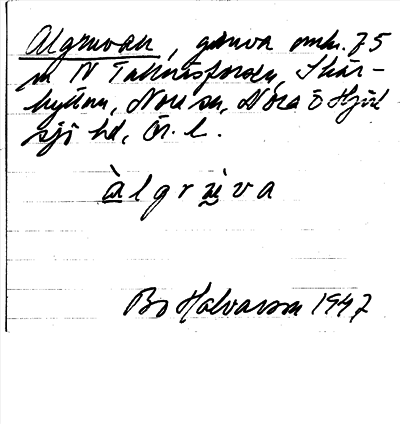 Algruvan, gruva omkr. 75
m N Taknäsfordn, Skär-
hyttan, Nora sn, Nora o Hjul
sjö hd, Ör. l.
àlgrùva
Bo Halvarson 1947